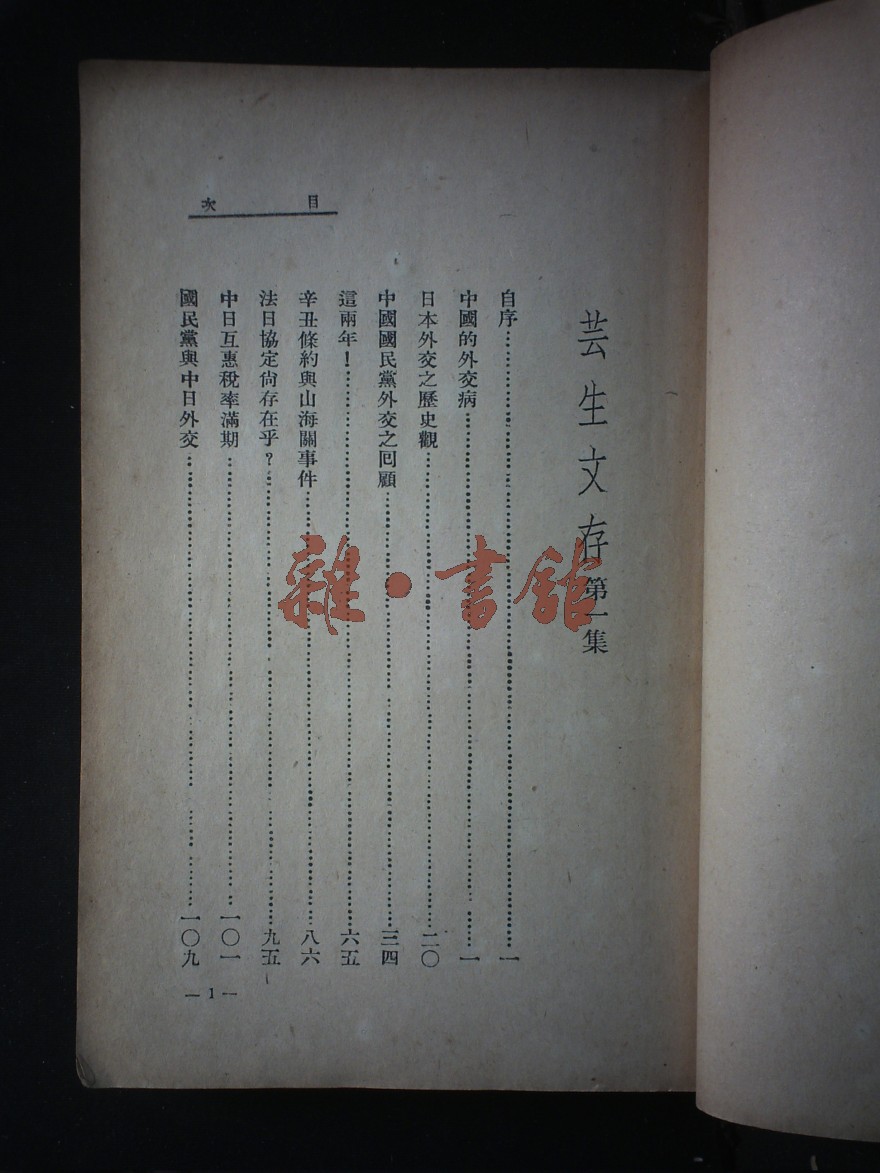 目次
芸生文存第一集
自序……………………一
中國的外交病……………………一
日本外交之歷史觀……………………二〇
中國國民黨外交之囘顧……………………三四
這兩年！……………………六五
辛丑條約與山海關事件……………………八六
法日協定尙存在乎？……………………九五
中日互惠稅率滿期……………………一〇一
國民黨與中日外交……………………一〇九
—1—
雜·書館